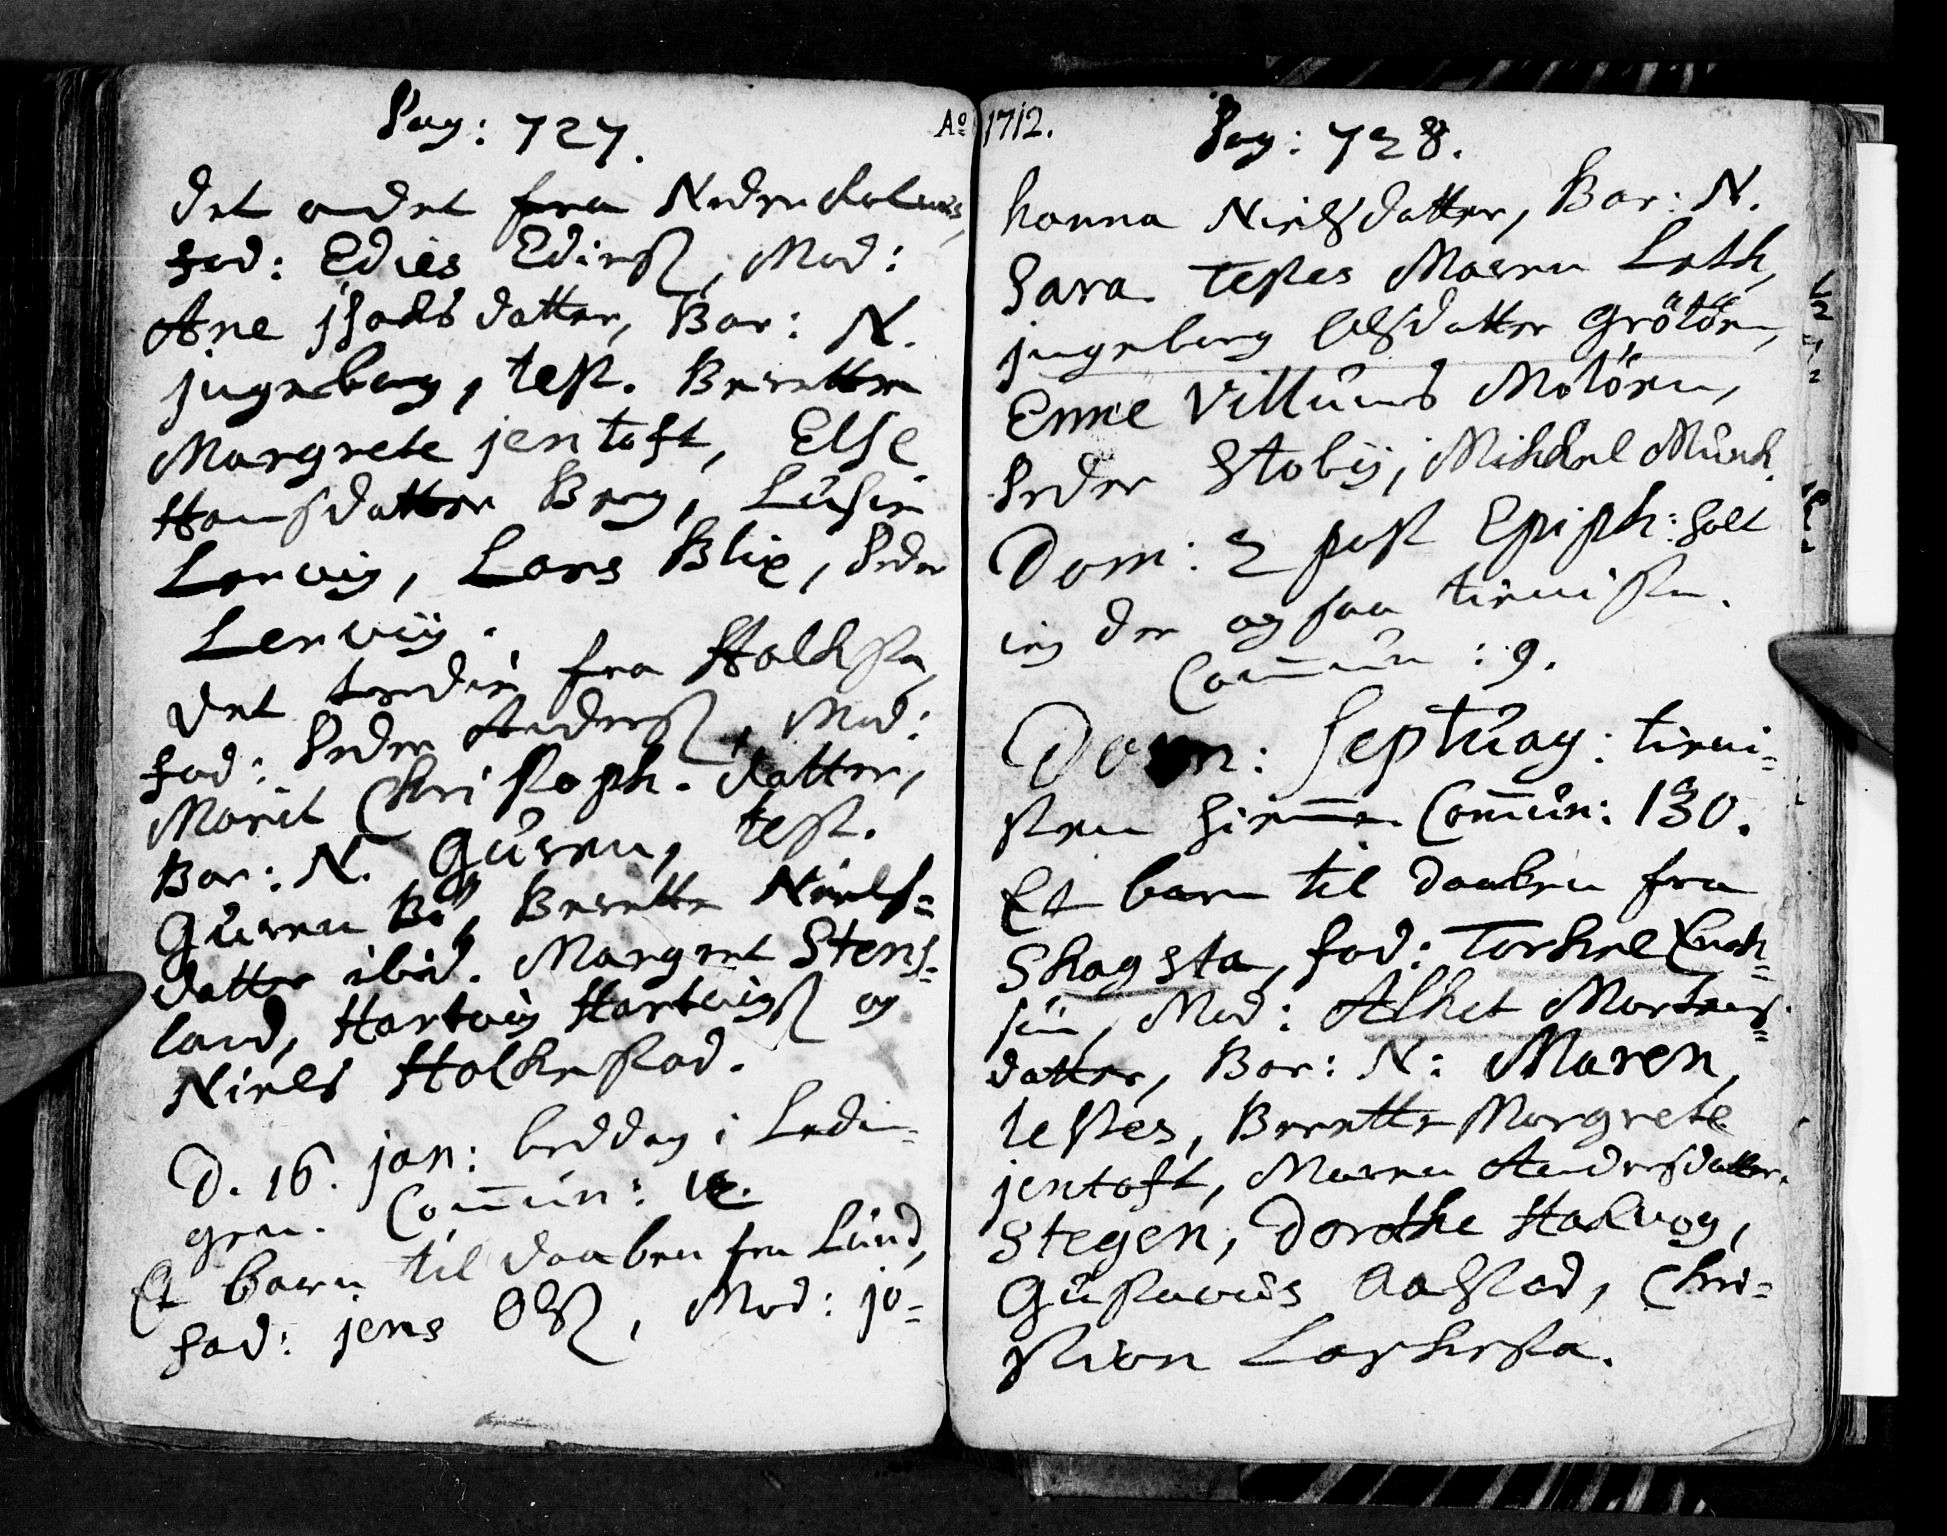 Pag: 727.
det andet fra Neder
Fad: Edies Edieß, Mod:
Ane jsachs datter, Bar: N.
jngeborg, test. Beretthe
Margrete jentoft, Else
Hansdatter Berg,
Lervig, Lars Blix, Peder
Lerviig.
det tredie fra Holkesta,
Fad: Peder Anderß, Mod:
Marit Christoph. datter,
Bar: N. Guren, test.
Guren Bö, Berette Niels=
datter ibid. Margret Stens=
land, Hartvig Hartvigß og
Niels Holkestad.
D. 16. jan: beddag i Ledin=
gen. Com̅un:
Et barn til daaben fra Lund,
Fad: jens Olß, Mod: jo=
Ao 1712.
Pag: 728.
hanna Nielsdatter, Bar: N.
Sara. Testes Maren Leth,
jngeborg Olsdatter Grötöen,
Enne Villums Molöen,
Peder Stobÿ, Mikkel Munk.
Dom: 2 post Epiph: holt
ieg der og saa tieniste.
Com̅un: 9.
Dom: Septuag: tieni=
sten hiem̅e. Com̅un: 130.
Et barn til daaben fra
Skagsta, fad: Torkel
sön, Mod: Alhet Mortens=
datter, Bar: N: Maren,
Testes, Berette Margrete
jentoft, Maren Andersdatter.
Stegen, Dorothe Halvog,
Gustavus Aalstad, Chri=
stian Laskesta.